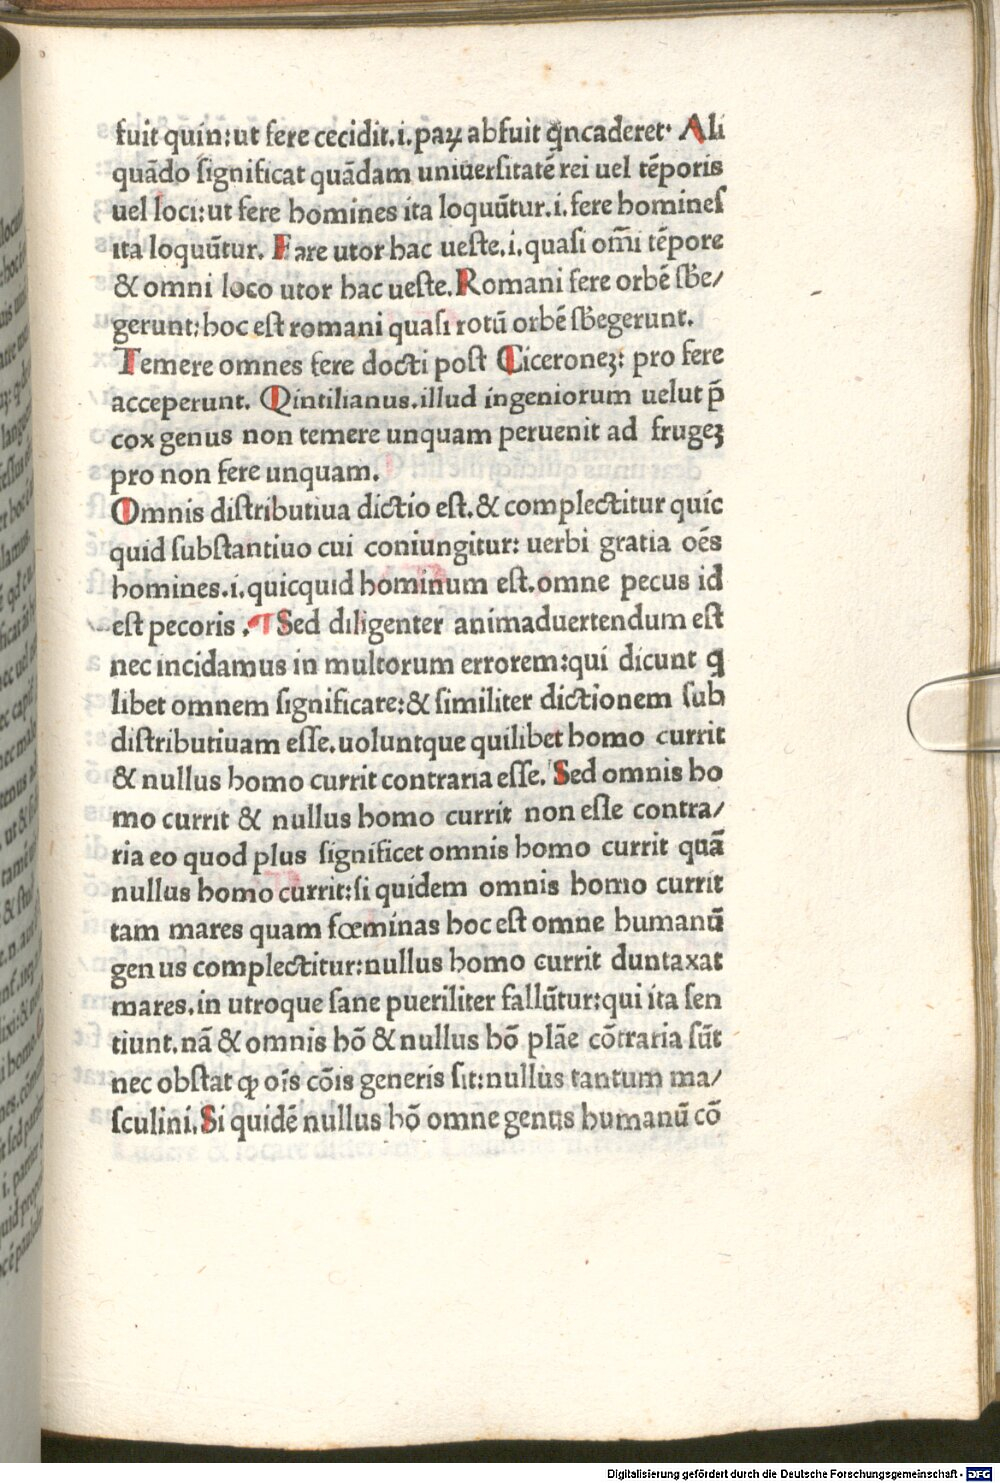 fuit quin: ut fere cecidit. i. paꝝ abfuit qͥncaderet· Ali
quādo ſignificat quādam uniuerſitatē rei uel tēporis
uel loci: ut fere homines ita loquūtur. i. fere homineſ
ita loquūtur. Fare utor hac ueſte. i. quaſi om̄i tēpore
& omni loco utor hac ueſte. Romani fere orbē ſb̄e/
gerunt: hoc eſt romani quaſi totū orbē ſb̄egerunt.
Temere omnes fere docti poſt Ciceroneꝫ: pro fere
acceperunt. Qintilianus. illud ingeniorum uelut p̄
cox genus non temere unquam peruenit ad frugeꝫ
pro non fere unquam.
Omnis diſtributiua dictio eſt. & complectitur quic
quid ſubſtantiuo cui coniungitur: uerbi gratia oēs
homines. i. quicquid hominum eſt. omne pecus id
eſt pecoris . ¶ Sed diligenter animaduertendum eſt
nec incidamus in multorum errorem: qui dicunt ꝗ
libet omnem ſignificare: & ſimiliter dictionem ſub
diſtributiuam eſſe. uoluntque quilibet homo currit
& nullus homo currit contraria eſſe. Sed omnis ho
mo currit & nullus homo currit non eſſe contra/
ria eo quod plus ſignificet omnis homo currit quā
nullus homo currit: ſi quidem omnis homo currit
tam mares quam fœminas hoc eſt omne humanū
genus complectitur: nullus homo currit duntaxat
mares. in utroque ſane pueriliter fallūtur: qui ita ſen
tiunt. nā & omnis hō & nullus hō plāe cōtraria ſūt
nec obſtat ꝙ oīs cōis generis ſit: nullus tantum ma/
ſculini. Si quidē nullus hō omne genus humanū cō
Digitalisierung gefördert durch die Deutsche Forschungsgemeinschaft - DFG